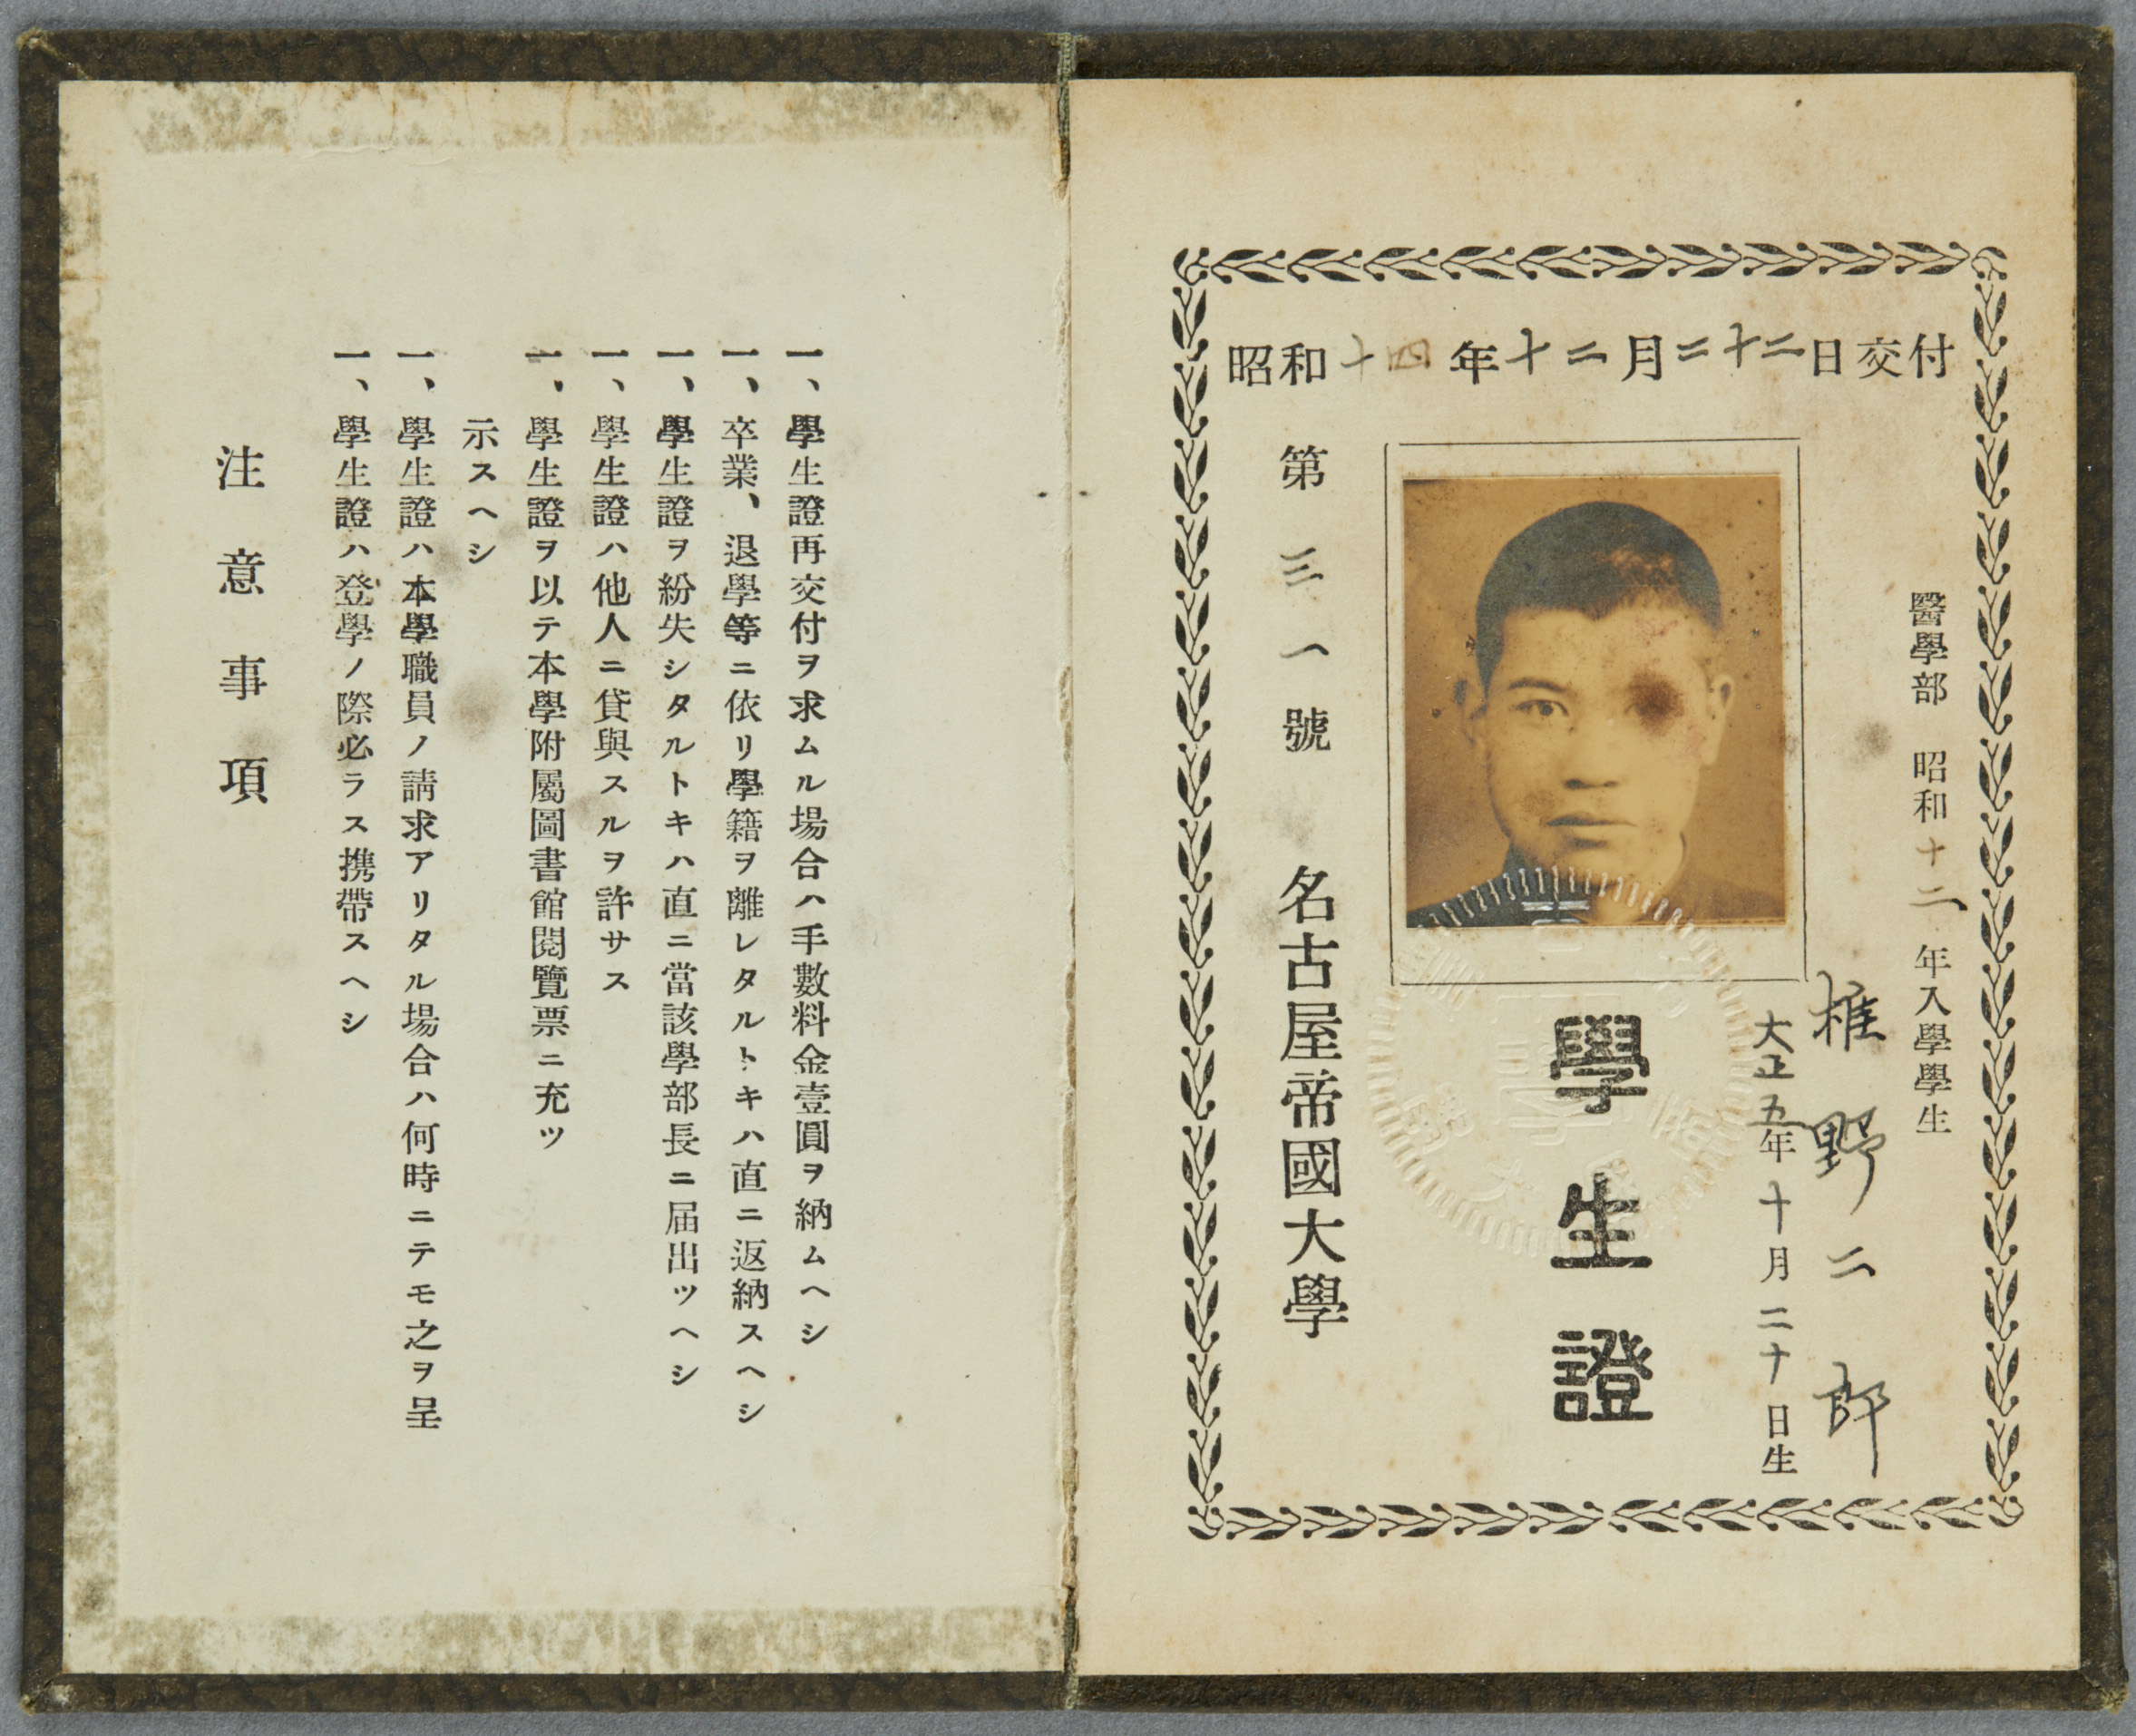 注意事項
一、學生證ハ登學ノ際必ラス携帶スヘシ
一、學生證ハ本學職員ノ請求アリタル場合ハ何時ニテモ之ヲ呈
示スヘシ
一、學生證ヲ以テ本學附屬圖書館閲覽票ニ充ツ
一、學生證ハ他人ニ貸與スルヲ許サス
一、學生證ヲ紛失シタルトキハ直ニ當該學部長ニ届出ツヘシ
一、卒業、退學等ニ依リ學籍ヲ離レタルトキハ直ニ返納スヘシ
一、學生證再交付ヲ求ムル場合ハ手數料金壹圓ヲ納ムヘシ
昭和十四年十二月二十二日交付
第三一號 名古屋帝國大學
學生證
大正五年十月二十日生
椎野二郎
醫學部 昭和十二年入學學生